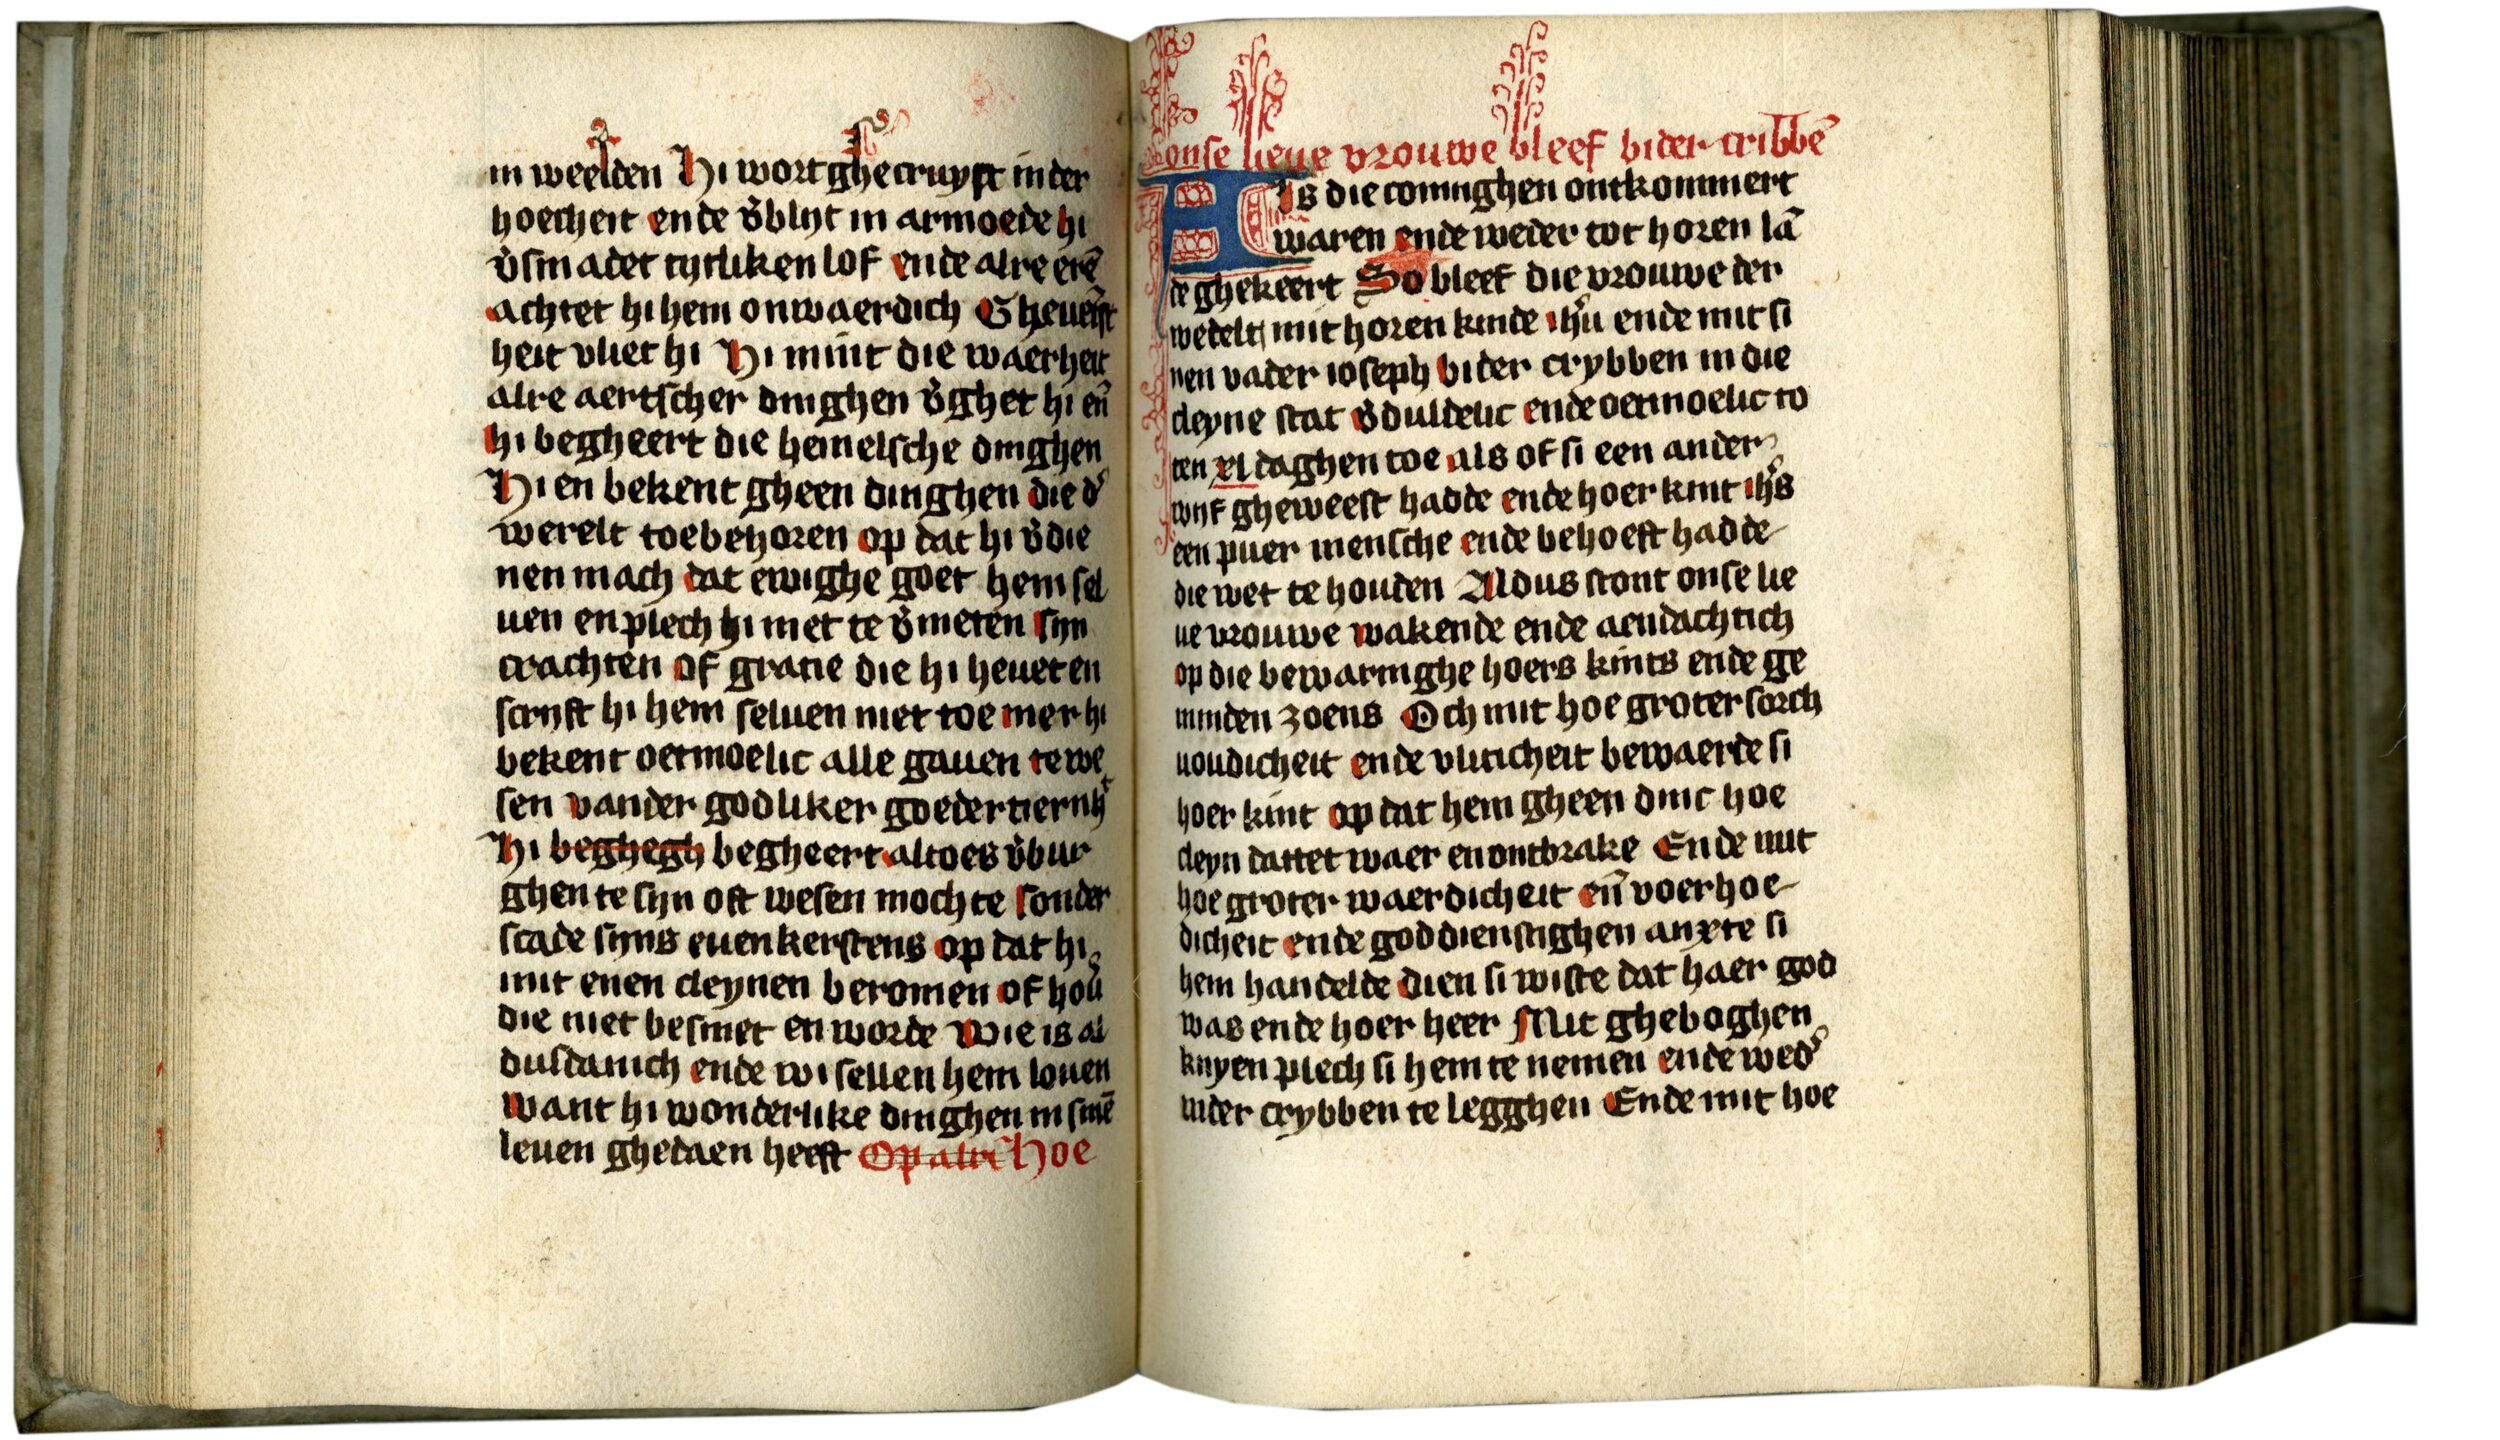 in weelden Hi wort ghecruyst in der
hoecheit ende v̄blijt in armoede hi
v̄smadet tytliken lof ende alre erē
achtet hi hem onwaerdich Gheueīst
heit vliet hi Hi mint die waerheit
alre aertscher dinghen v̄ghet hi en̄
hi begheert die hemelsche dinghen
Hi en bekent gheen dinghen die d̕
werelt toebehoren op dat hi v̄die
nen mach dat ewighe goet hem sel
uen en plech hi niet te v̄meten sijn
crachten of gratie die hi heuet en
scrijft hi hem seluen niet toe mer hi
bekent oetmoelic alle gauen te we
sen vander godliker goedertiernhᵗ
Hi beghegh begheert altoes v̄bur
ghen te sijn oft wesen mochte sonder
scade sijns euenkerstens op dat hi
mit enen cleynen beromen of hou̕
die niet besmet en worde Wie is al
dusdanich ende wi sellen hem louen
Want hi wonderlike dinghen in sinē
leuen ghedaen heeft Op alre Hoe
onse lieue vrouwe bleef bi der cribbē
Als die coninghen ontkommert
waren ende weder tot horen lā
de ghekeert So bleef die vrouwe der
wedelt mit horen kinde ihū ende mit si
nen vader ioseph bi der crybben in die
cleyne stat v̄duldelic ende oetmoelic to
ten xl daghen toe als of si een ander
wijf gheweest hadde ende hoer kint ihs̄
een puer mensche ende behoeft hadde
die wet te houden Aldus stont onse lie
ue vrouwe wakende ende aendachtich
op die bewaringhe hoers kints ende ge
minden zoens Och mit hoe groter sorch
uoudicheit ende vliticheit bewaerde si
hoer kint op dat hem gheen dinc hoe
cleyn dattet waer en ontbrake Ende mit
hoe groter waerdicheit en̄ voerhoe
dicheit ende goddienstighen anxte si
hem handelde dien si wiste dat haer god
was ende hoer heer Mit gheboghen
knyen plech si hem te nemen ende wed̕
inder crybben te legghen Ende mit hoe